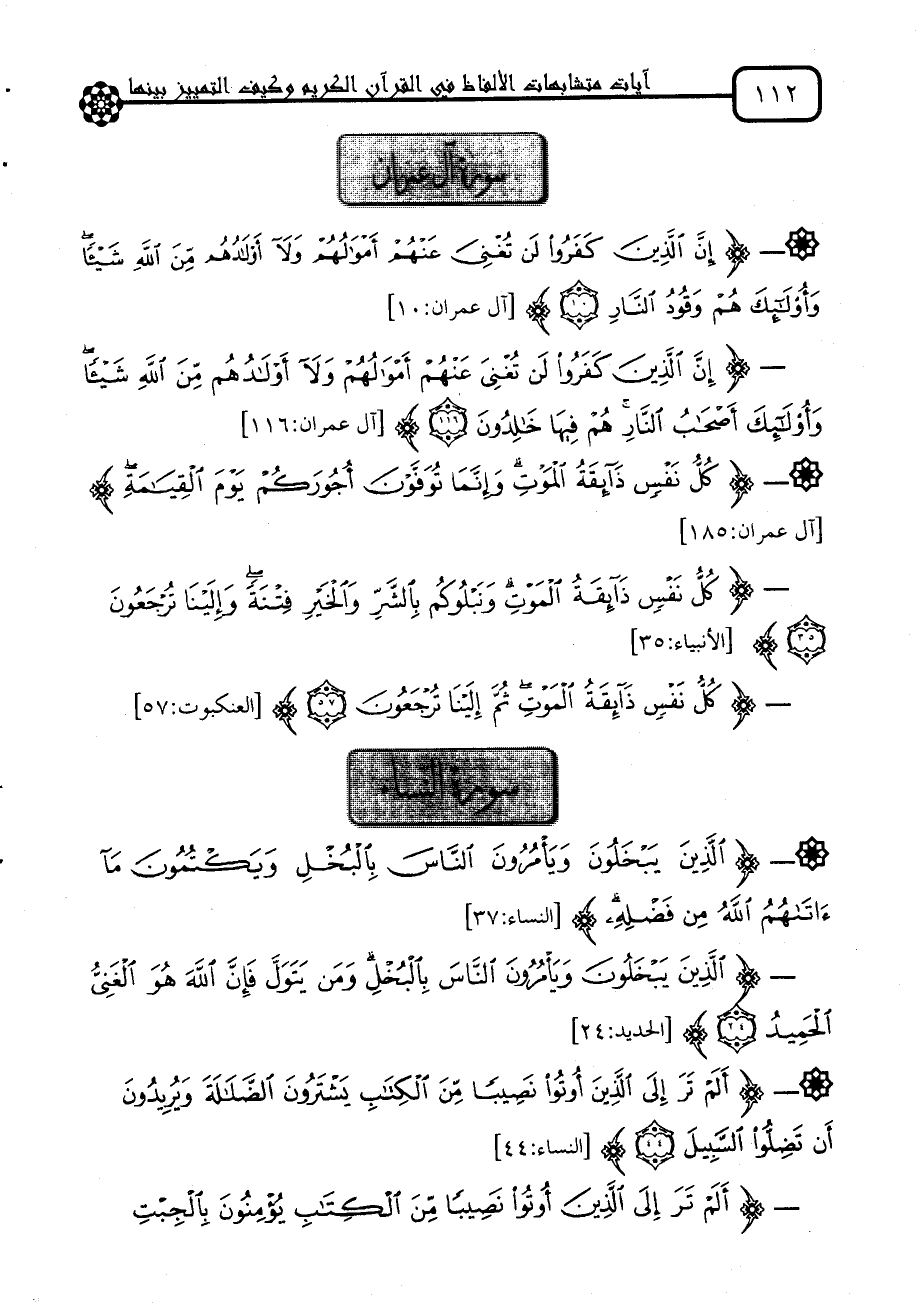 آيات متشابهات الألفاظ في القرآن الكريم وكيف التمييز بينها ١١٢
سورة آل عمران
— ﴿ إِنَّ ٱلَّذِينَ كَفَرُوا۟ لَن تُغْنِىَ عَنْهُمْ أَمْوَٰلُهُمْ وَلَآ أَوْلَٰدُهُم مِّنَ ٱللَّهِ شَيْـًٔا ۖ
وَأُو۟لَٰٓئِكَ هُمْ وَقُودُ ٱلنَّارِ ١٠ ﴾ [آل عمران:١٠]
— ﴿ إِنَّ ٱلَّذِينَ كَفَرُوا۟ لَن تُغْنِىَ عَنْهُمْ أَمْوَٰلُهُمْ وَلَآ أَوْلَٰدُهُم مِّنَ ٱللَّهِ شَيْـًٔا ۖ
وَأُو۟لَٰٓئِكَ أَصْحَٰبُ ٱلنَّارِ ۚ هُمْ فِيهَا خَٰلِدُونَ ١١٦ ﴾ [آل عمران:١١٦]
— ﴿ كُلُّ نَفْسٍ ذَآئِقَةُ ٱلْمَوْتِ ۗ وَإِنَّمَا تُوَفَّوْنَ أُجُورَكُمْ يَوْمَ ٱلْقِيَٰمَةِ ۖ ﴾
[آل عمران:١٨٥]
— ﴿ كُلُّ نَفْسٍ ذَآئِقَةُ ٱلْمَوْتِ ۗ وَنَبْلُوكُم بِٱلشَّرِّ وَٱلْخَيْرِ فِتْنَةً ۖ وَإِلَيْنَا تُرْجَعُونَ
٣٥ ﴾ [الأنبياء:٣٥]
— ﴿ كُلُّ نَفْسٍ ذَآئِقَةُ ٱلْمَوْتِ ۖ ثُمَّ إِلَيْنَا تُرْجَعُونَ ٥٧ ﴾ [العنكبوت:٥٧]
سورة النساء
— ﴿ ٱلَّذِينَ يَبْخَلُونَ وَيَأْمُرُونَ ٱلنَّاسَ بِٱلْبُخْلِ وَيَكْتُمُونَ مَآ
ءَاتَىٰهُمُ ٱللَّهُ مِن فَضْلِهِۦ ۗ ﴾ [النساء:٣٧]
— ﴿ ٱلَّذِينَ يَبْخَلُونَ وَيَأْمُرُونَ ٱلنَّاسَ بِٱلْبُخْلِ ۗ وَمَن يَتَوَلَّ فَإِنَّ ٱللَّهَ هُوَ ٱلْغَنِىُّ
ٱلْحَمِيدُ ٢٤ ﴾ [الحديد:٢٤]
— ﴿ أَلَمْ تَرَ إِلَى ٱلَّذِينَ أُوتُوا۟ نَصِيبًا مِّنَ ٱلْكِتَٰبِ يَشْتَرُونَ ٱلضَّلَٰلَةَ وَيُرِيدُونَ
أَن تَضِلُّوا۟ ٱلسَّبِيلَ ٤٤ ﴾ [النساء:٤٤]
— ﴿ أَلَمْ تَرَ إِلَى ٱلَّذِينَ أُوتُوا۟ نَصِيبًا مِّنَ ٱلْكِتَٰبِ يُؤْمِنُونَ بِٱلْجِبْتِ